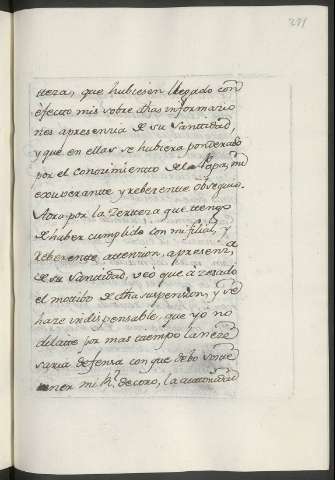 271
ttera, que hubiesen llegado con
efecto mis sobre dhas informacio
nes apresencia de su Santidad,
y que en ellas se hubiera ponderado
por el conocimiento del Papa, mi
exuverante y reberente obsequio.
Aora por la zertteza que ttengo
de haber cumplido con mi filial, y
reberente, attencion, apresencia
de su Santidad, veo que a zesado
el motibo de dha suspension, y se
haze indispensable, que yo no
dilatte por mas tiempo la nece
saria defensa con que debo soste
ner mi Rl. decoro, la autoridad